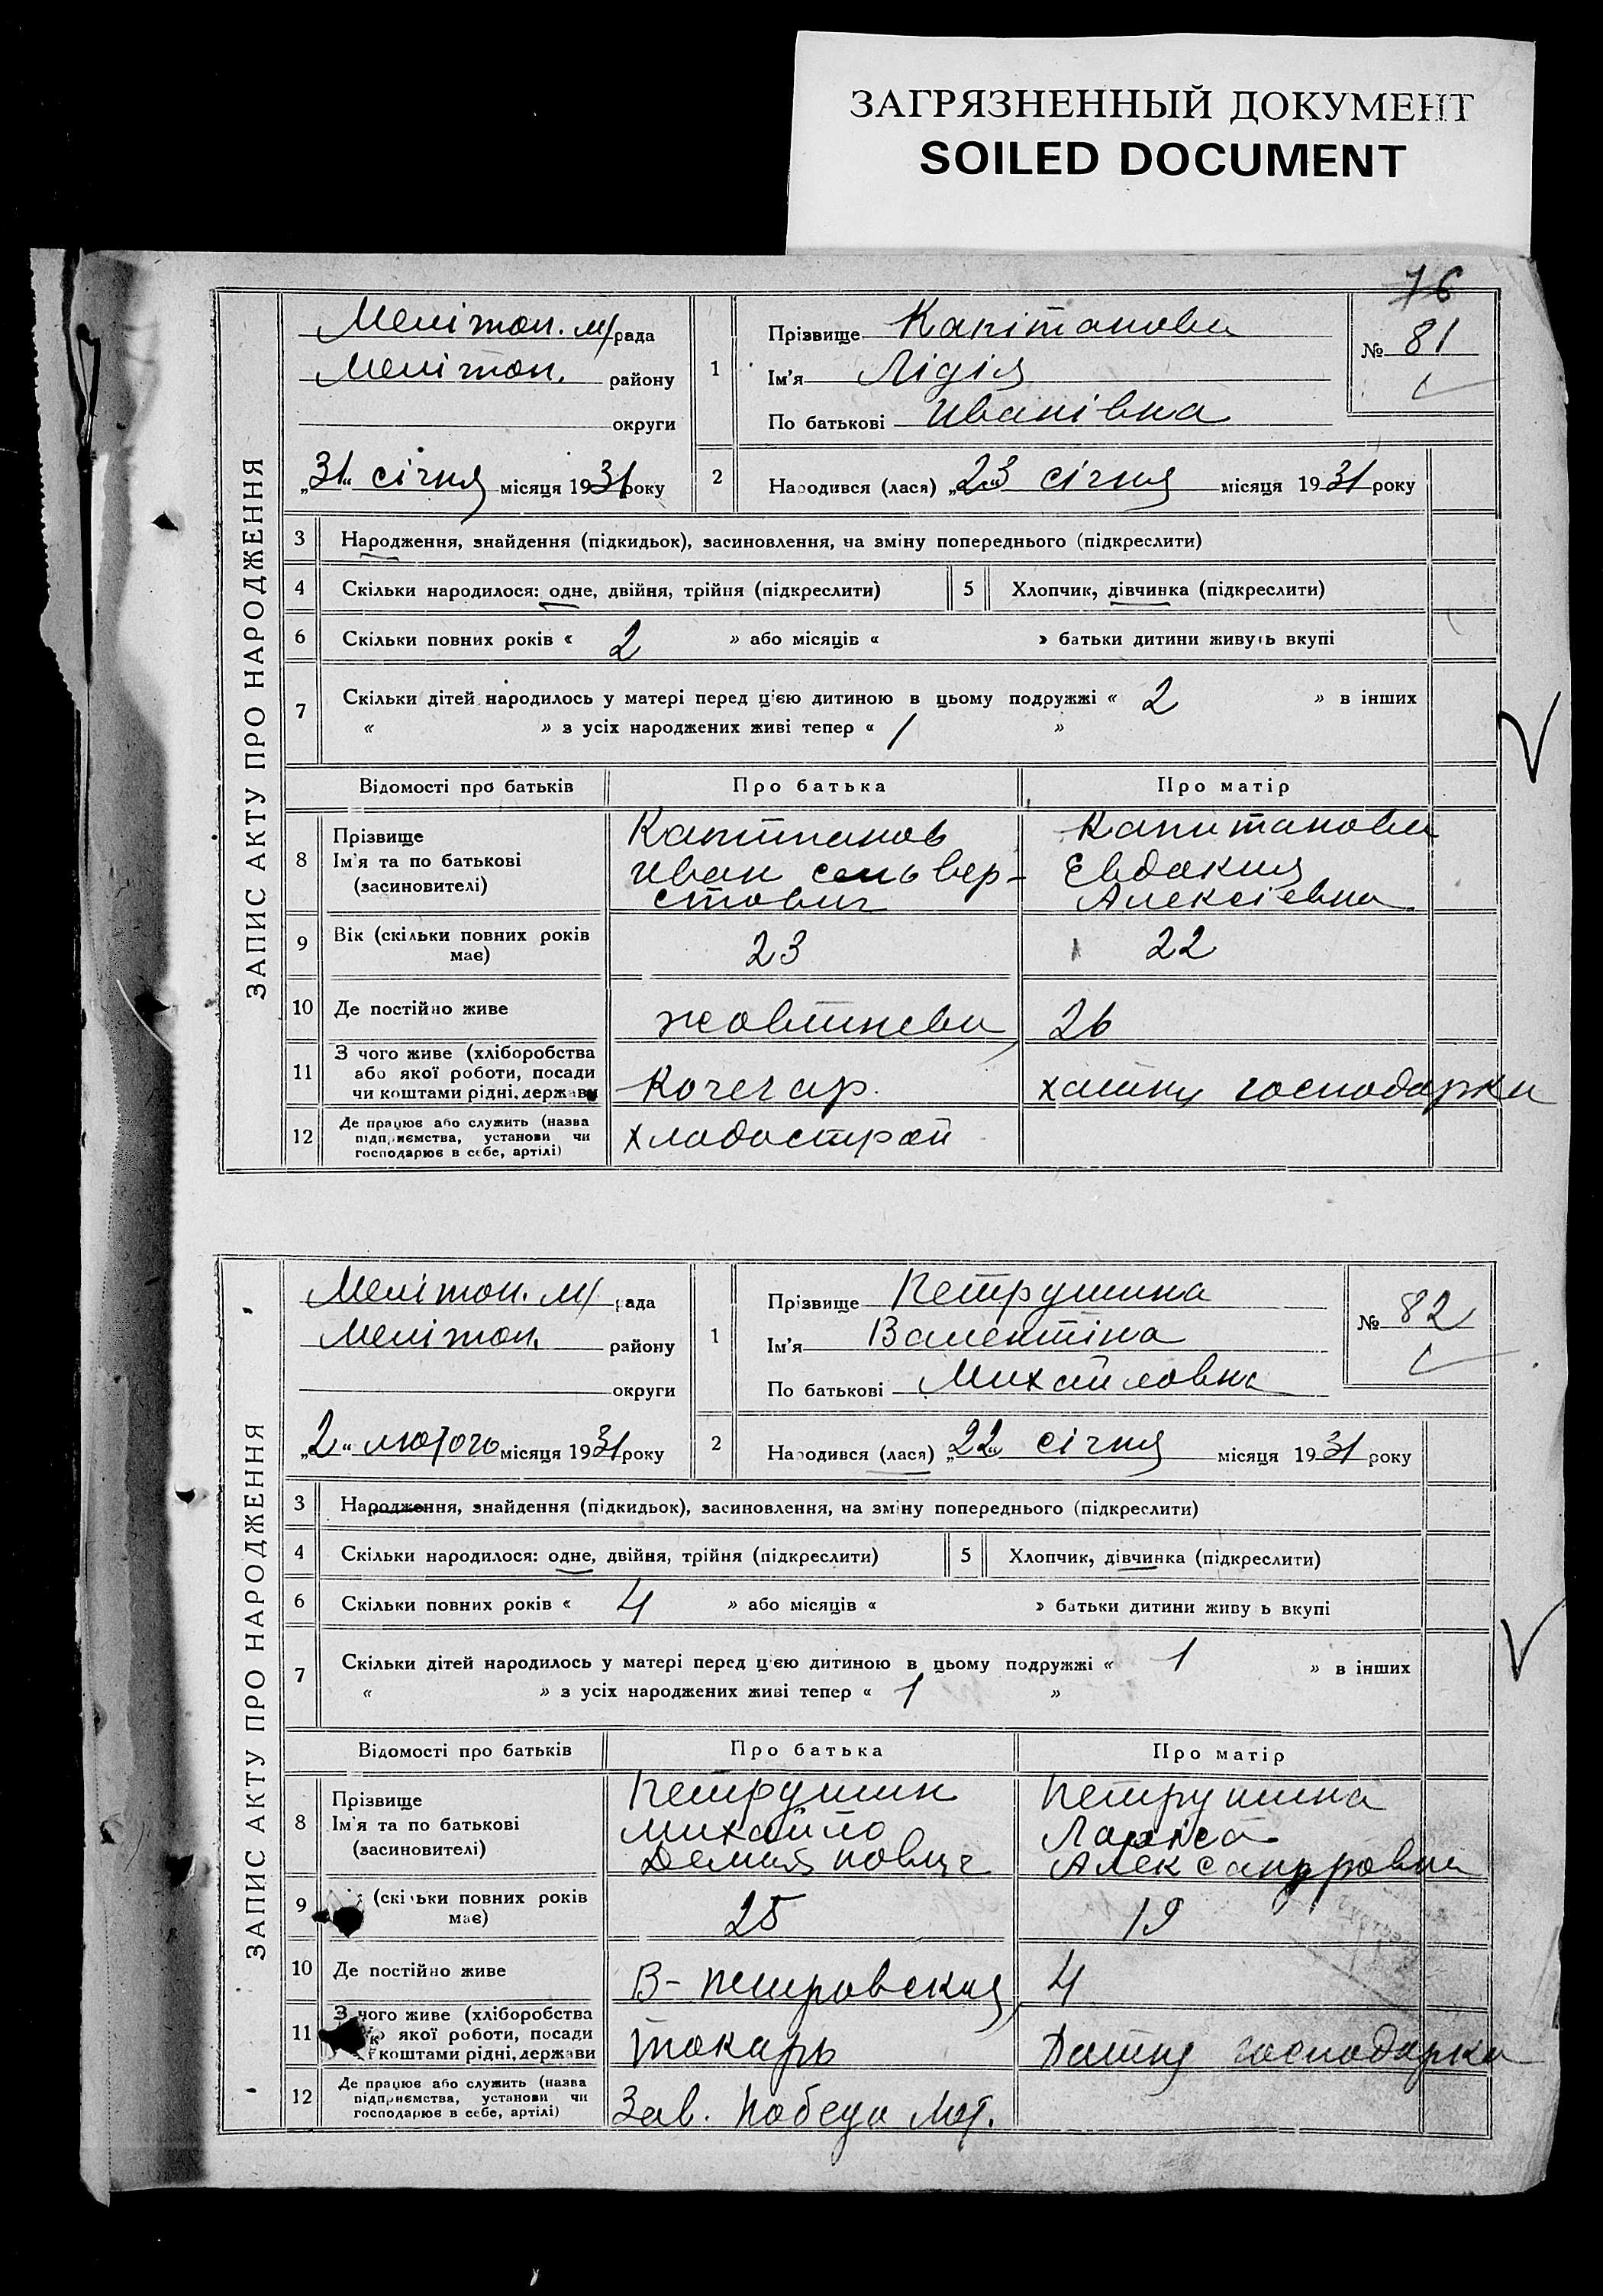 ЗАГРЯЗНЕННЫЙ ДОКУМЕНТ
SOILED DOCUMENT
76
ЗАПИС АКТУ ПРО НАРОДЖЕННЯ
Мелітоп. м/рада
Мелітоп. району
округи
„31“ січня місяця 1931 року
1
Прізвище Капітанова
Ім'я Лідія
По батькові Иванівна
№ 81
2
Народився (лася) „23“ січня місяця 1931 року
3 Народження, знайдення (підкидьок), засиновлення, на зміну попереднього (підкреслити)
4 Скільки народилося: одне, двійня, трійня (підкреслити) 5 Хлопчик, дівчинка (підкреслити)
6 Скільки повних років « 2 » або місяців « » батьки дитини живуть вкупі
7 Скільки дітей народилось у матері перед цією дитиною в цьому подружжі « 2 » в інших
« » з усіх народжених живі тепер « 1 »
Відомості про батьків Про батька Про матір
8 Прізвище Капитанов Капитанова
Ім'я та по батькові Иван Сельвер- Евдакия
(засиновителі) стович Алексієвна
9 Вік (скільки повних років має) 23 22
10 Де постійно живе Жовтнева, 26
11 З чого живе (хліборобства
або якої роботи, посади
чи коштами рідні, держави Кочегар. хатня господарка
12 Де працює або служить (назва
підприємства, установи чи
господарює в себе, артілі) Хладострой
ЗАПИС АКТУ ПРО НАРОДЖЕННЯ
Мелітоп. м/рада
Мелітоп. району
округи
„2“ лютого місяця 1931 року
1
Прізвище Петрушина
Ім'я Валентіна
По батькові Михайловна
№ 82
2
Народився (лася) „22“ січня місяця 1931 року
3 Народження, знайдення (підкидьок), засиновлення, на зміну попереднього (підкреслити)
4 Скільки народилося: одне, двійня, трійня (підкреслити) 5 Хлопчик, дівчинка (підкреслити)
6 Скільки повних років « 4 » або місяців « » батьки дитини живу ь вкупі
7 Скільки дітей народилось у матері перед цією дитиною в цьому подружжі « 1 » в інших
« » з усіх народжених живі тепер « 1 »
Відомості про батьків Про батька Про матір
8 Прізвище Петрушин Петрушина
Ім'я та по батькові Михайло Лариса
(засиновителі) Демьянович Александровна
9 (скільки повних років має) 25 19
10 Де постійно живе В-Петровская, 4
11 З чого живе (хліборобства
якої роботи, посади
коштами рідні, держави токарь Хатня господарка
12 Де працює або служить (назва
підприємства, установи чи
господарює в себе, артілі) Зав. Победа Мот.